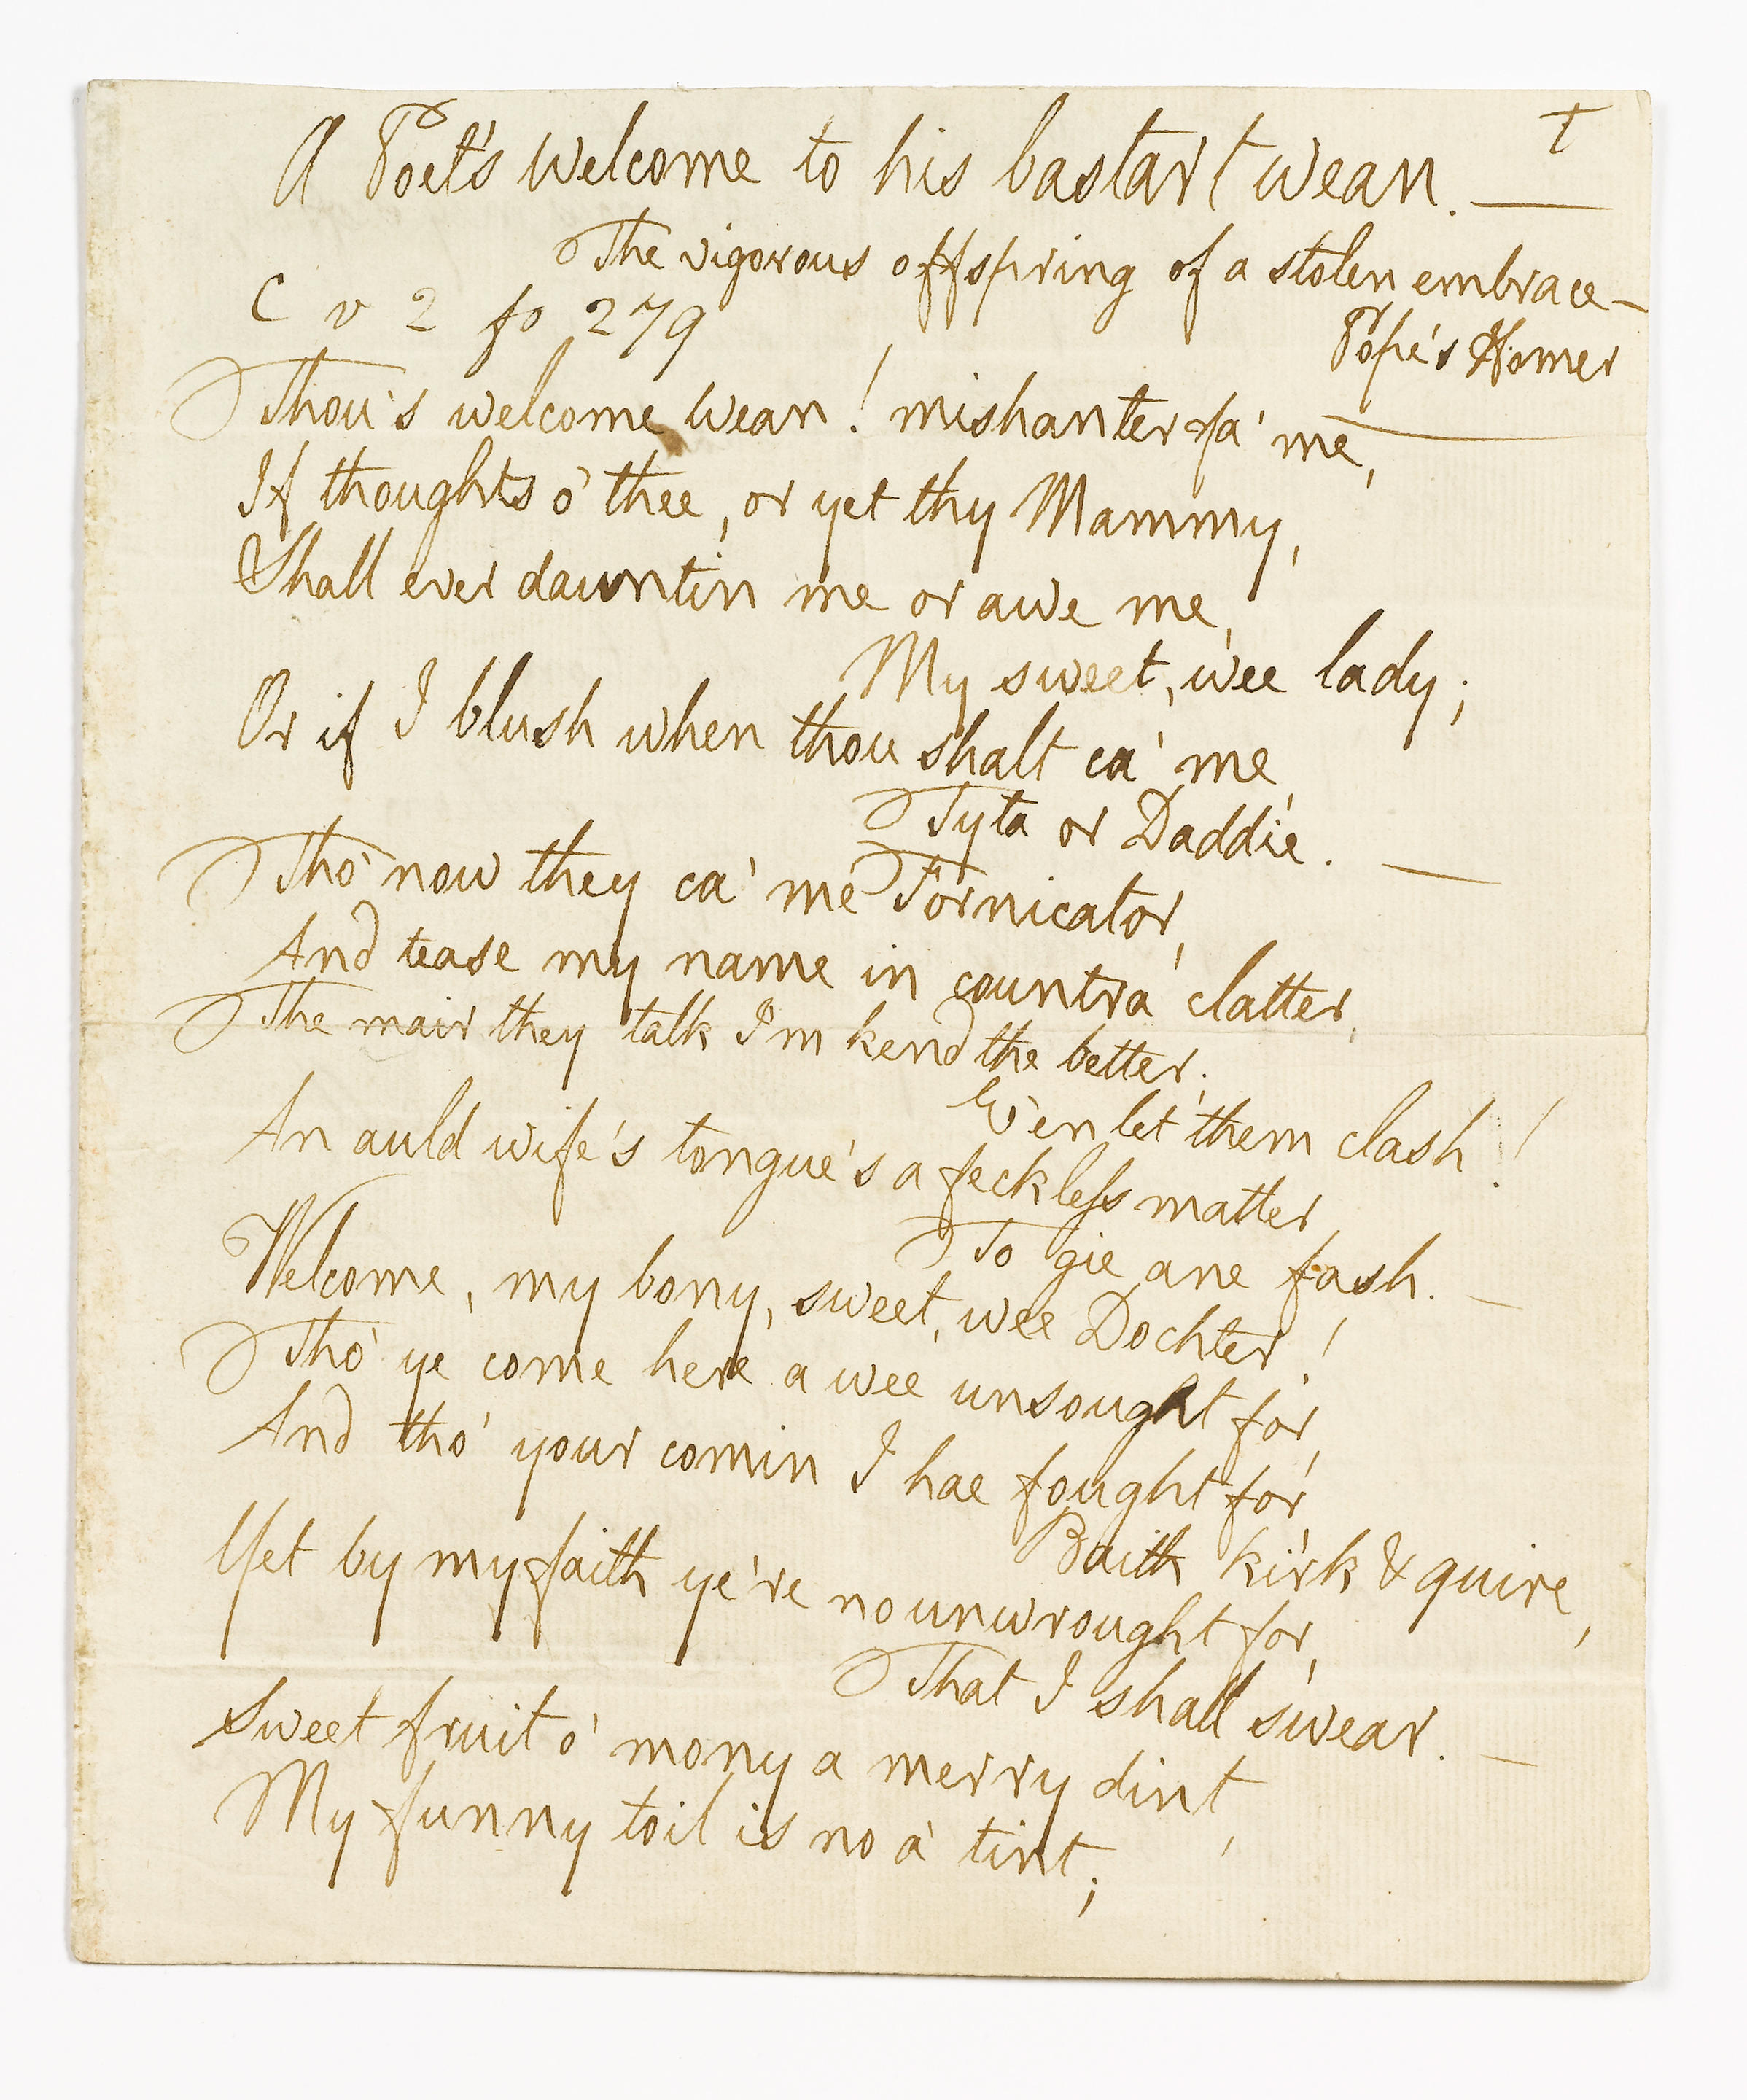 A Poet's welcome to his bastart wean. —
†
The vigorous offspring of a stolen embrace —
C v 2 fo 279
Pope's Homer
Thou's welcome wean! mishanter fa' me,
If thoughts o' thee, or yet thy Mammy,
Shall ever dauntin me or awe me,
My sweet, wee lady;
Or if I blush when thou shalt ca' me
Tyta or Daddie. —
Tho' now they ca' me Fornicator,
And tease my name in countra clatter,
The mair they talk I'm kend the better;
E'en let them clash!
An auld wife's tongue's a feckless matter
To gie ane fash. —
Welcome, my bony, sweet, wee Dochter!
Tho' ye come here a wee unsought for,
And tho' your comin I hae fought for
Baith kirk & quire,
Yet by my faith ye're no unwrought for,
That I shall swear. —
Sweet fruit o' mony a merry dint,
My funny toil is no a' tint;